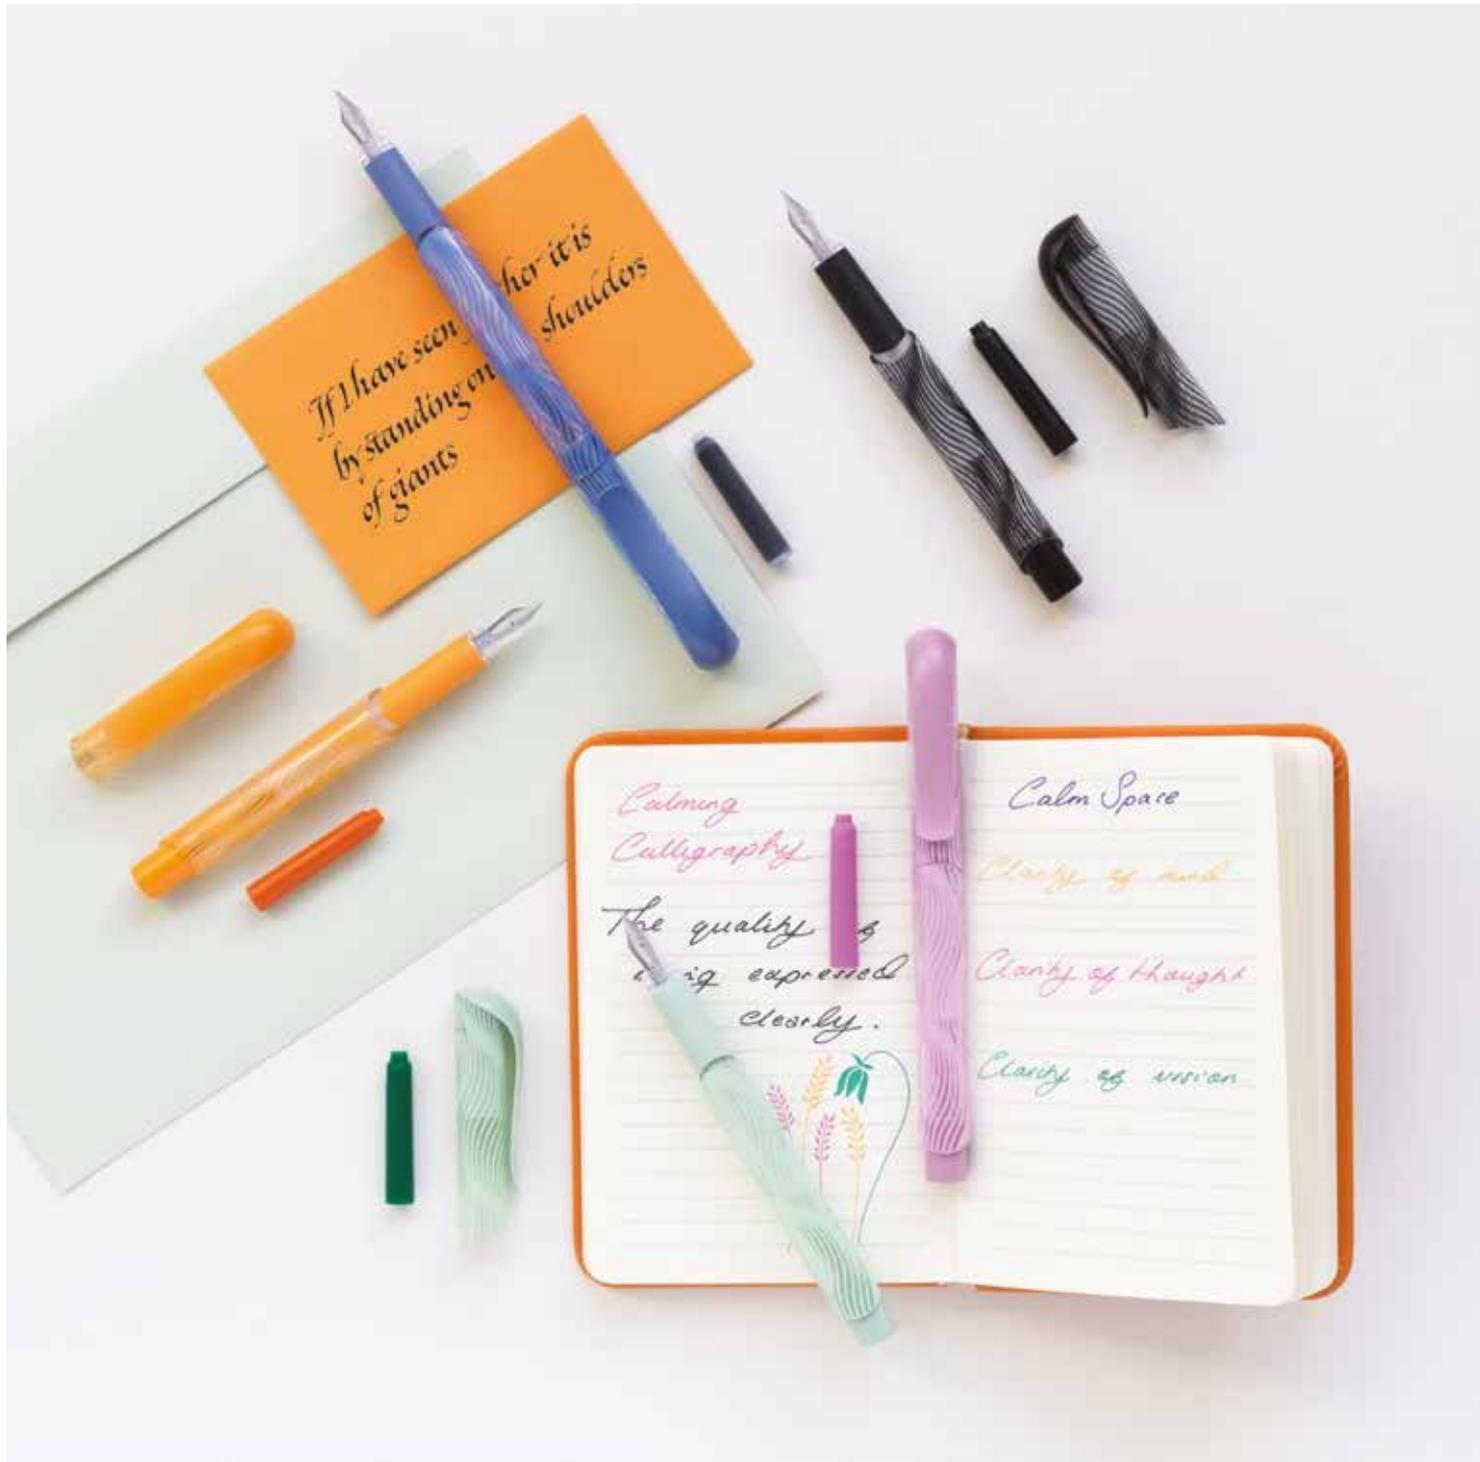 If I have seen her it is
by standing on shoulders
of giants
Calming
Calligraphy
The quality of
expressed
clearly.
Calm Space
Clarity of mind
Clarity of thought
Clarity of vision